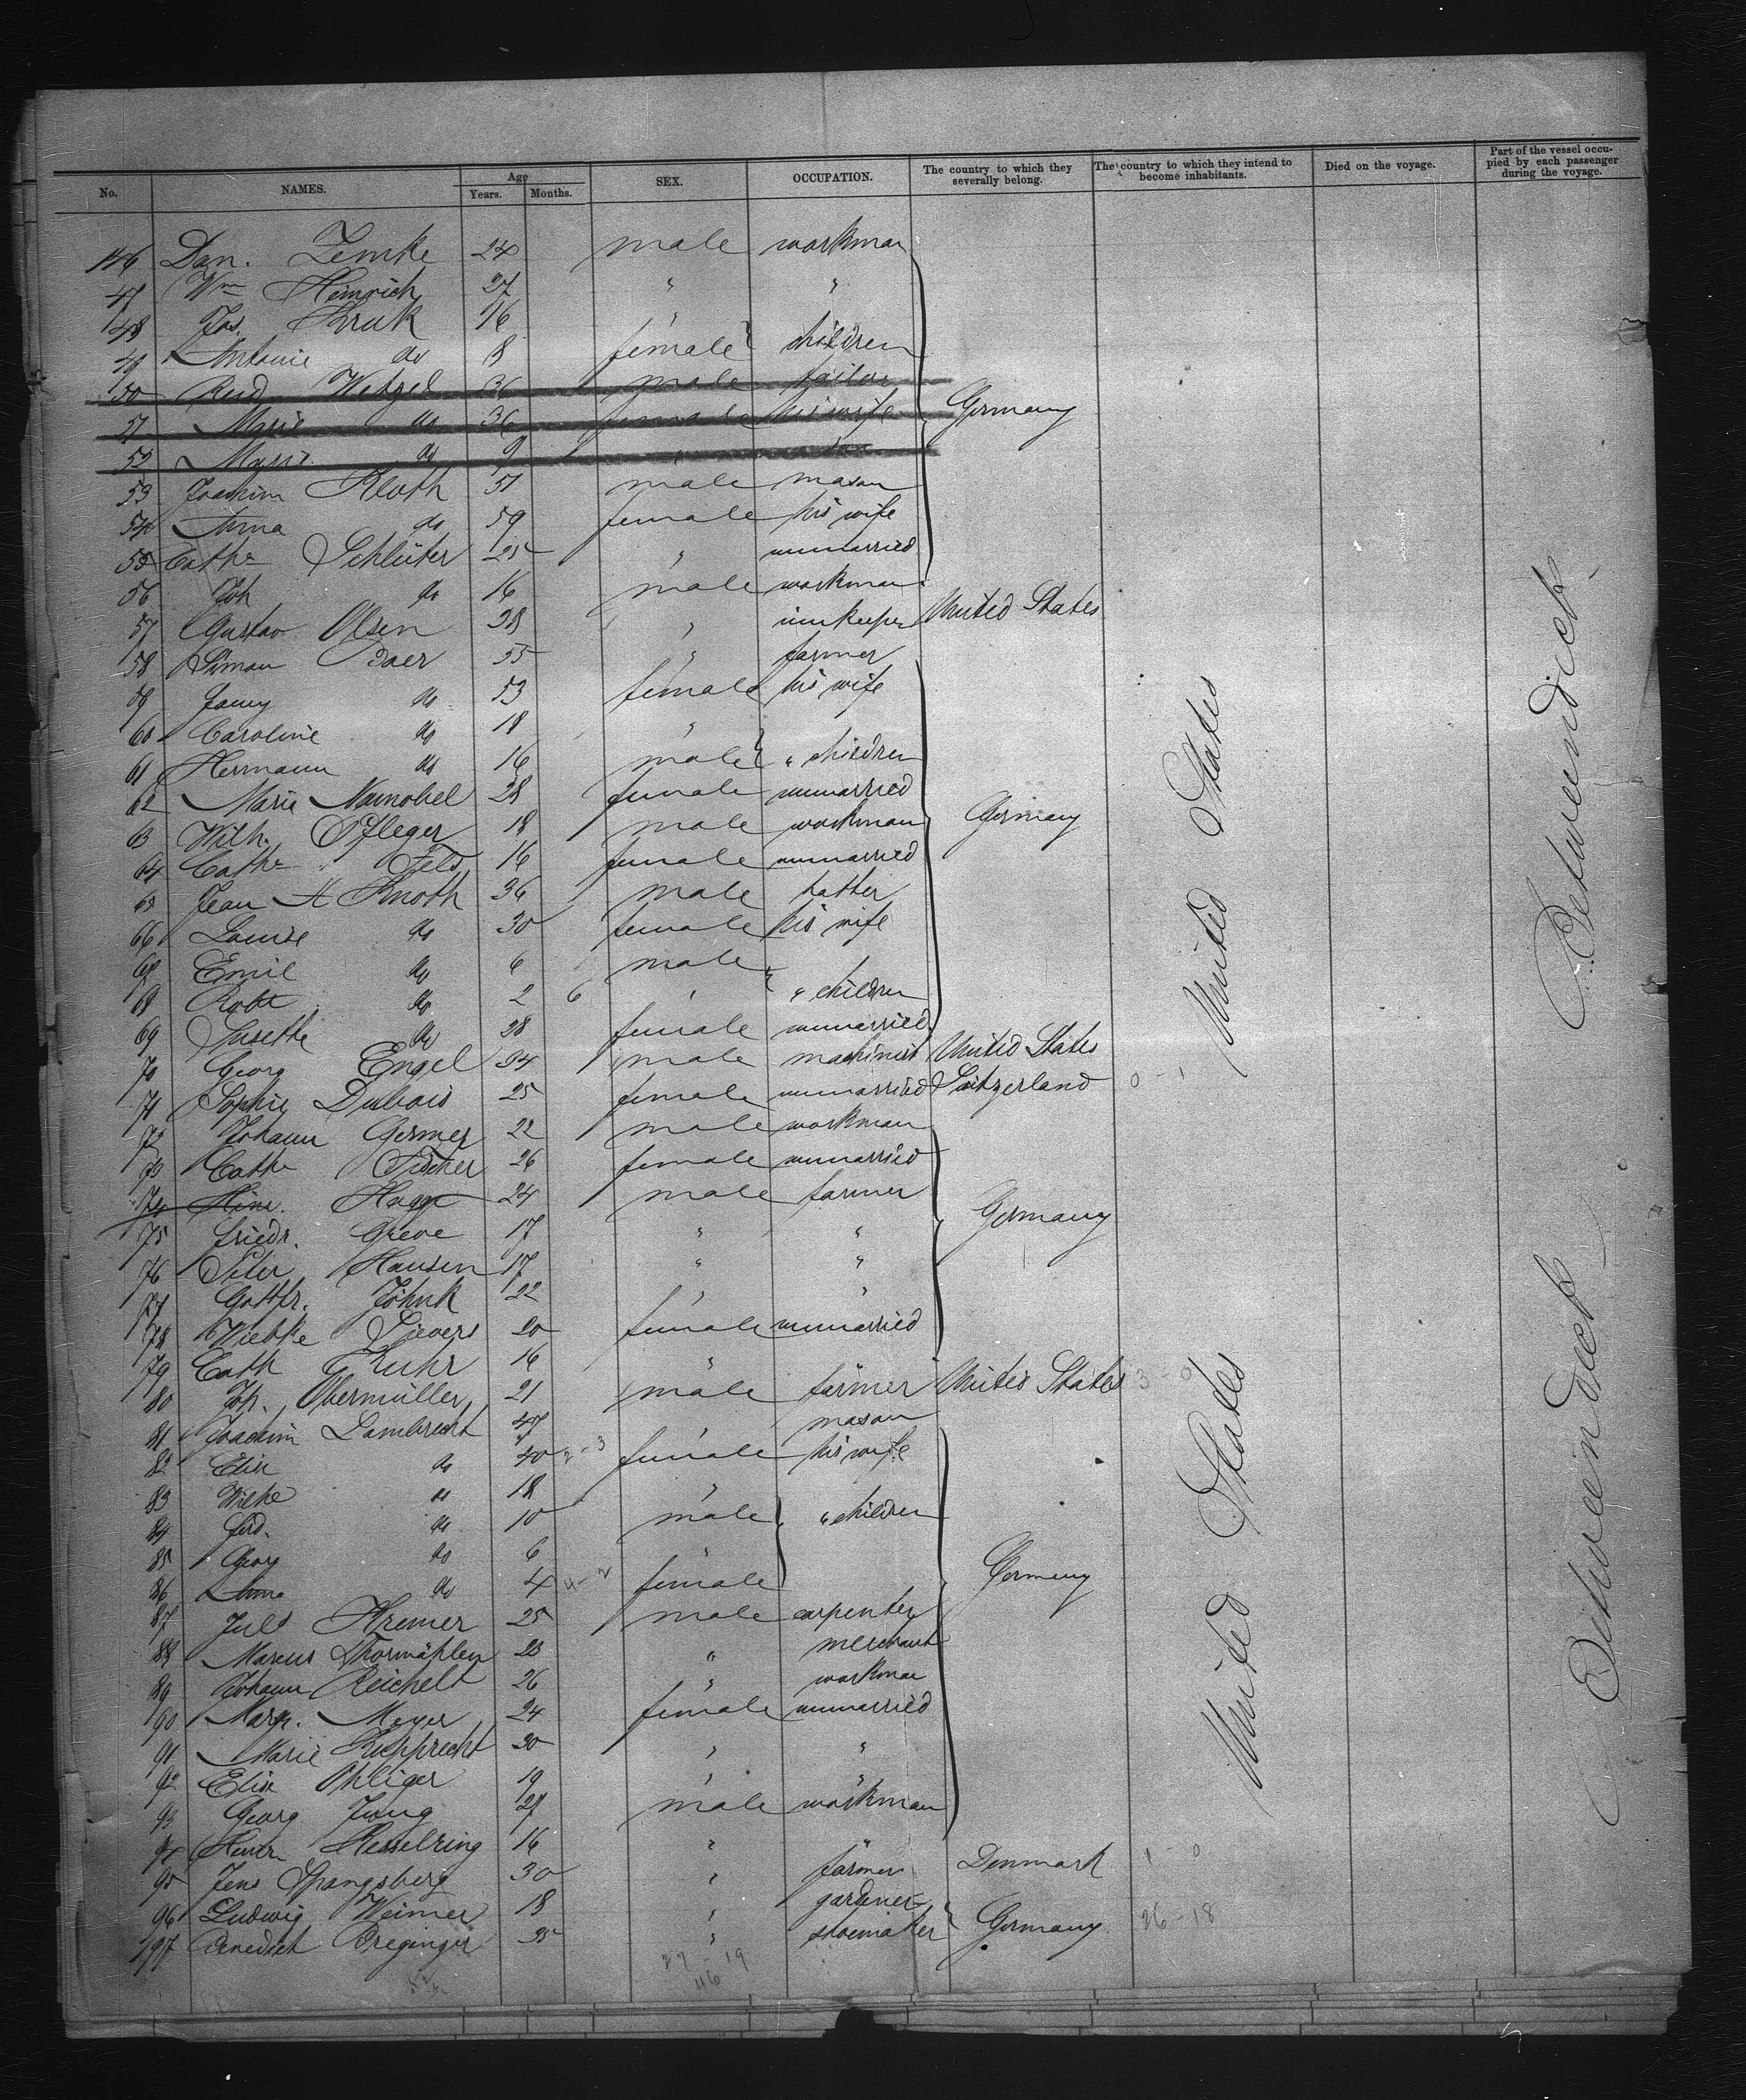 No. NAMES. Age Years. Months. SEX. OCCUPATION. The country to which they severally belong. The country to which they intend to become inhabitants. Died on the voyage. Part of the vessel occupied by each passenger during the voyage.
146 Dan. Zemke 24 male workman
47 Wm Heinrich 27 " "
48 Jos. Kruk 16 "
49 Antonie do 8 female children
50 Wetzel 36 male tailor
51 Marie do 36 female his wife Germany
52 do 9 "
53 Joachim Kloth 51 male mason
54 Anna do 59 female his wife
55 Cathe Schlüter 25 " unmarried
56 Joh do 16 male workman
57 Gustav Olsen 28 " innkeeper United States
58 Simon 55 " farmer
59 do 53 female his wife
60 Caroline do 18 "
61 Hermann do 16 male " children
62 Marie 28 female unmarried
63 Wilh. Pfleger 18 male workman Germany
64 Cathe Fels 16 female unmarried
65 Jean H Knoth 36 male hatter
66 Louise do 30 female his wife
67 Emil do 6 male
68 Robt do 2 6 " " children
69 Susette do 28 female unmarried
70 Georg Engel 34 male machinist United States
71 Sophie Dubois 25 female unmarried Switzerland 0 - 1
72 Johann Germer 22 male workman
73 Cathe Fischer 26 female unmarried
74 Hinr. 24 male farmer
75 Friedr. Greve 17 " " Germany
76 Peter Hansen 17 " "
77 Gottfr. Jöhnk 22 " "
78 Wiebke Sievers 20 female unmarried
79 Cath Kuhr 16 "
80 Jos. Obermüller 21 male farmer United States 3 - 0
81 Joachim Lambrecht 47 " mason
82 Elise do 40 2 - 3 female his wife
83 Wilhe do 18 "
84 Ferd. do 10 male " children
85 Georg do 6 "
86 Anna do 4 4 - 2 female Germany
87 Juls Kremer 25 male carpenter
88 Marcus Thormählen 23 " merchant
89 Johann Reichelt 26 " workman
90 Marg. Meyer 24 female unmarried
91 Marie Rupprecht 20 " "
92 Elise Ohliger 19 " "
93 Georg Jung 27 male workman
94 Heinr. Kesselring 16 " "
95 Jens Spangsberg 30 " farmer Denmark 1 - 0
96 Ludwig Weimer 18 " gardener
197 Benedict 35 " shoemaker Germany 26 - 18
27 - 19
46
United States
United States
Betweendeck
Betweendeck